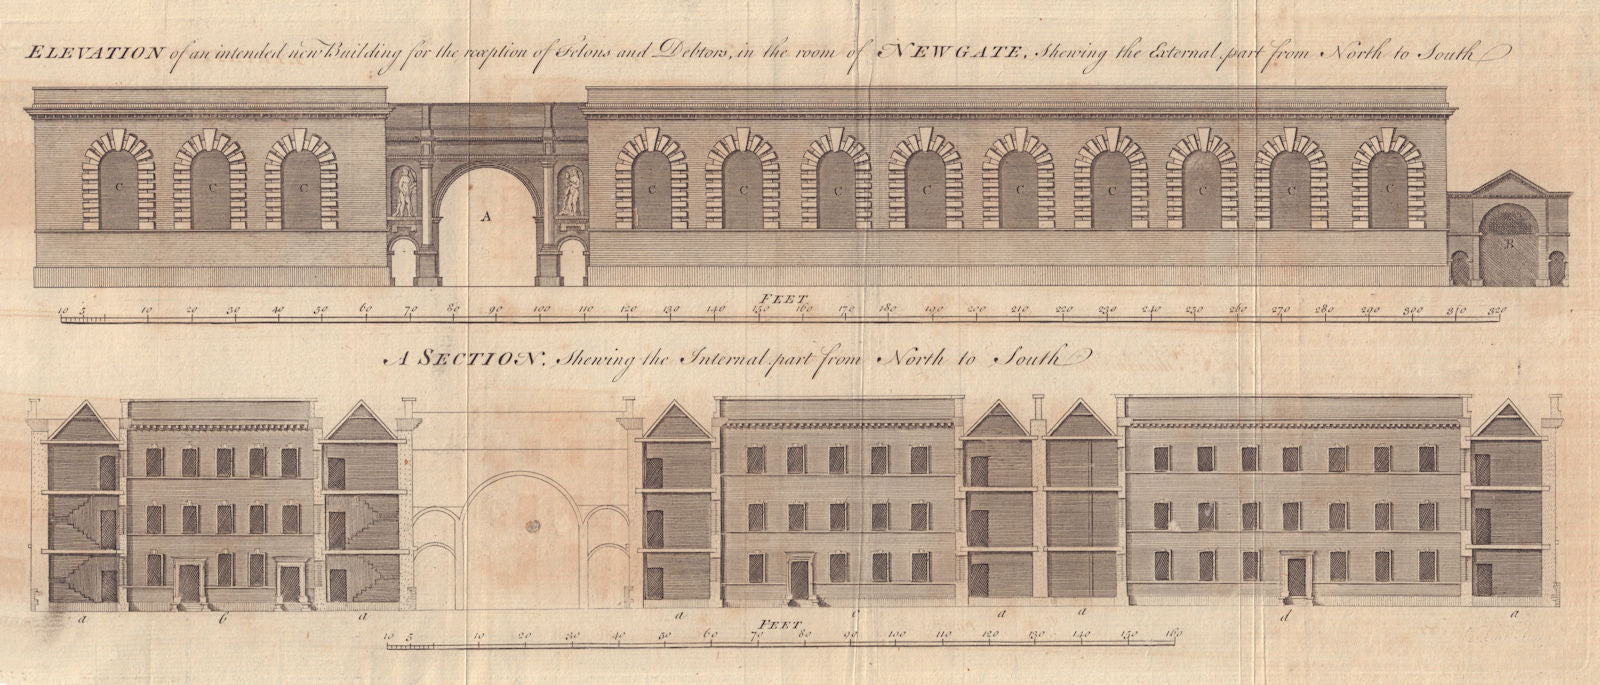 ELEVATION of an intended new Building for the reception of Felons and Debtors, in the room of NEWGATE, Shewing the External part from North to South
C C C A C C C C C C C C C B
FEET
10 5 10 20 30 40 50 60 70 80 90 100 110 120 130 140 150 160 170 180 190 200 210 220 230 240 250 260 270 280 290 300 310 320
A SECTION, Shewing the Internal part from North to South
a b a a c a a d a
FEET
10 5 10 20 30 40 50 60 70 80 90 100 110 120 130 140 150 160